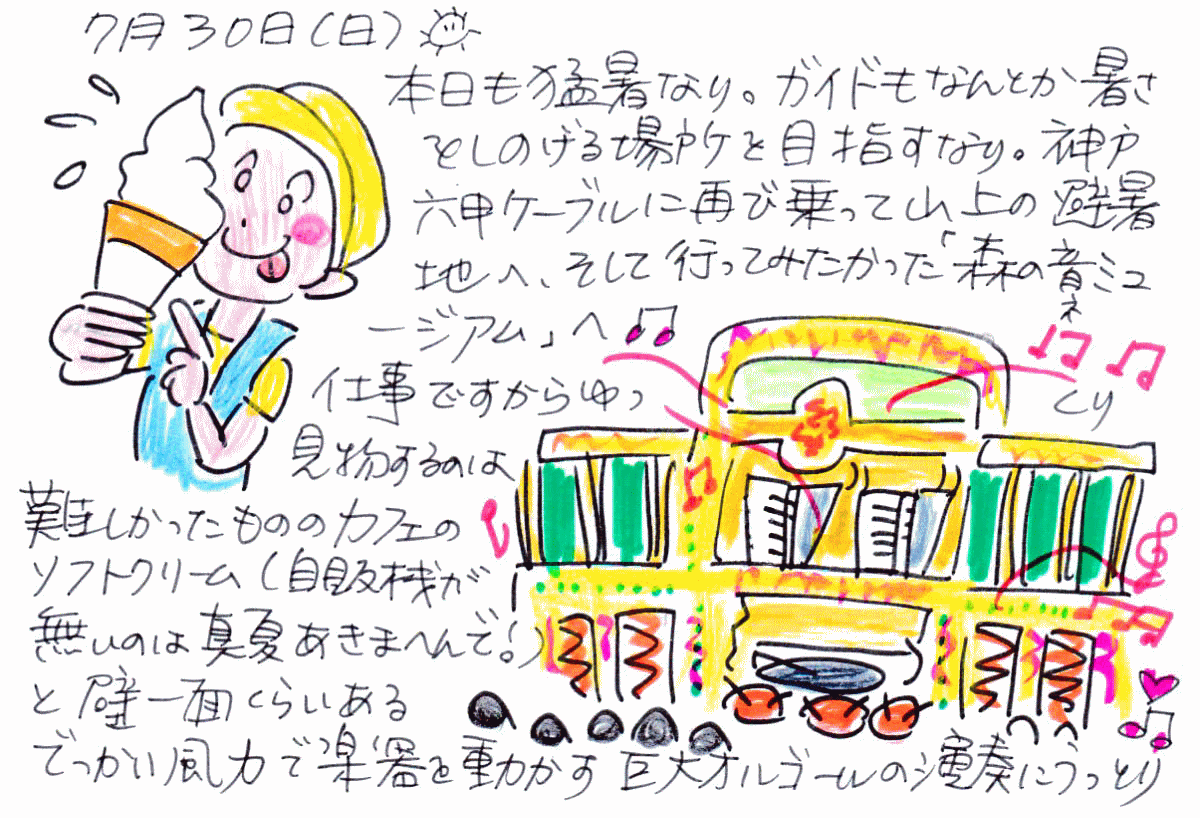 7月30日(日)
本日も猛暑なり。ガイドもなんとか暑さ
をしのげる場所を目指すなり。神戸
六甲ケーブルに再び乗って山上の避暑
地へ、そして行ってみたかった「森の音ミュ
ネ
ージアム」へ
仕事ですからゆっ
くり
見物するのは
難しかったもののカフェの
ソフトクリーム(自販機が
無いのは真夏あきまへんで!)
と壁一面くらいある
でっかい風力で楽器を動かす巨大オルゴールの演奏にうっとり